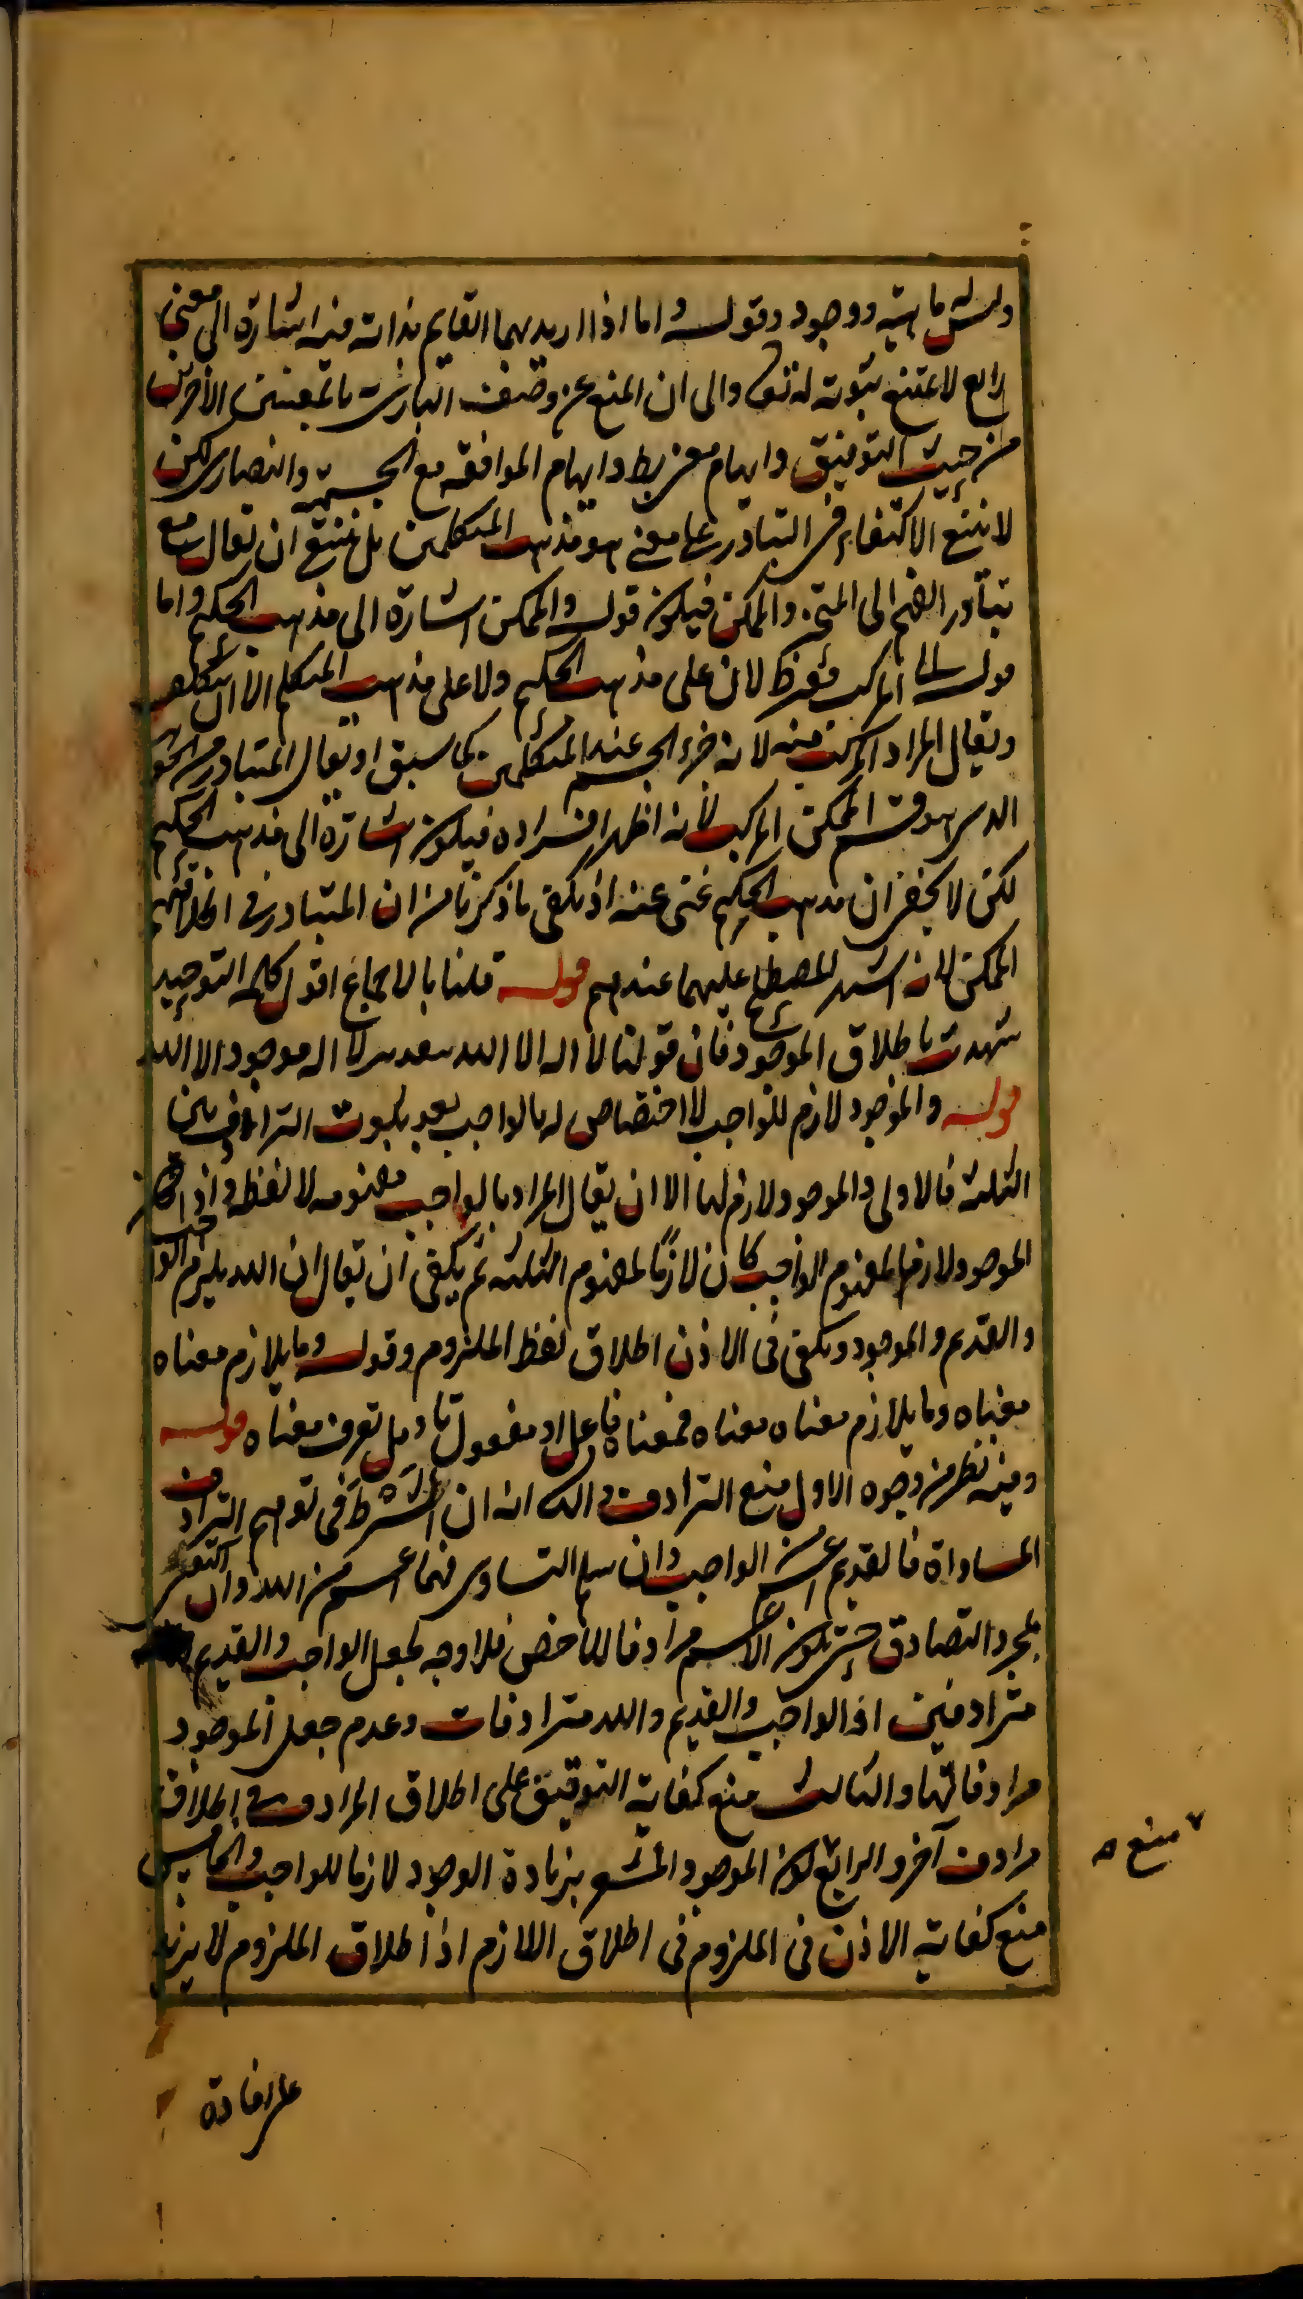 وليس له ماهية ووجود وقوله واما اذا اريد بهما القايم بذاته فيه اشارة الى معنى
رابع لا يمتنع ثبوته له تعالى والى ان المنع عن وصف البارى بالمعنيين الاخرين
من حيث التوفيق وايهام الموافقة مع المجسمة والنصارى لكن
لا يمنع الاكتفاء فى التبادر على معنى هو مذهب المتكلمين بل يمنع ان يقال مع
تبادر الفهم الى المتحيز والممكن فيكون قوله والممكن اشارة الى مذهب الحكيم واما
قوله المركب لا على مذهب الحكيم ولا على مذهب المتكلم الا ان يتكلف
ويقال المراد المركب منه لانه جزء الجسم عند المتكلمين كما سبق او يقال المتبادر من الجوهر
الذى هو قسم الممكن المركب لانه اظهر افراده فيكون اشارة الى مذهب الحكيم
لكن لا يخفى ان مذهب الحكيم غنى عنه اذ يكفى ما ذكرنا من ان المتبادر فى اطلاقهم
الممكن لانه اشهر المصطلح عليهما عندهم قوله قلنا بالاجماع اقول كلمة التوحيد
شهدت باطلاق الموجود فان قولنا لا اله الا الله لا اله موجود الا الله
قوله والموجود لازم للواجب لا اختصاص له بالواجب بعد ثبوت الترادف بين
الثلثة فالاولى والموجود لازم لها الا ان يقال المراد بالواجب مفهومه لا لفظه واذا كان
الموجود لازما لمفهوم الواجب كان لازما لمفهوم الثلثة ثم يكفى ان يقال ان الله يلزم الواجب
والقديم والموجود ويكفى فى الاذن اطلاق لفظ الملزوم وقوله وما يلازم معناه
معناه وما يلازم معناه معناه فمعناه فاعل او مفعول تامل تعرف معناه قوله
وفيه نظر من وجوه الاول منع الترادف والثانى انه ان اشترط فى توهم الترادف
المساواة فالقديم اعم من الواجب وان سلم التساوى فهما اعم من الله وان اكتفى
بمجرد التصادق حتى يكون الاعم مرادفا للاخص فلا وجه لجعل الواجب والقديم
مترادفين اذ الواجب والقديم والله مترادفات وعدم جعل الموجود
مرادفا لها والثالث منع كفاية التوقيف على اطلاق المرادف فى اطلاق
مرادف آخر والرابع كون الموجود المشعر بزيادة الوجود لازما للواجب والخامس
منع كفاية الاذن فى الملزوم فى اطلاق اللازم اذ اطلاق الملزوم لا يزيد
منع صح
على افادة